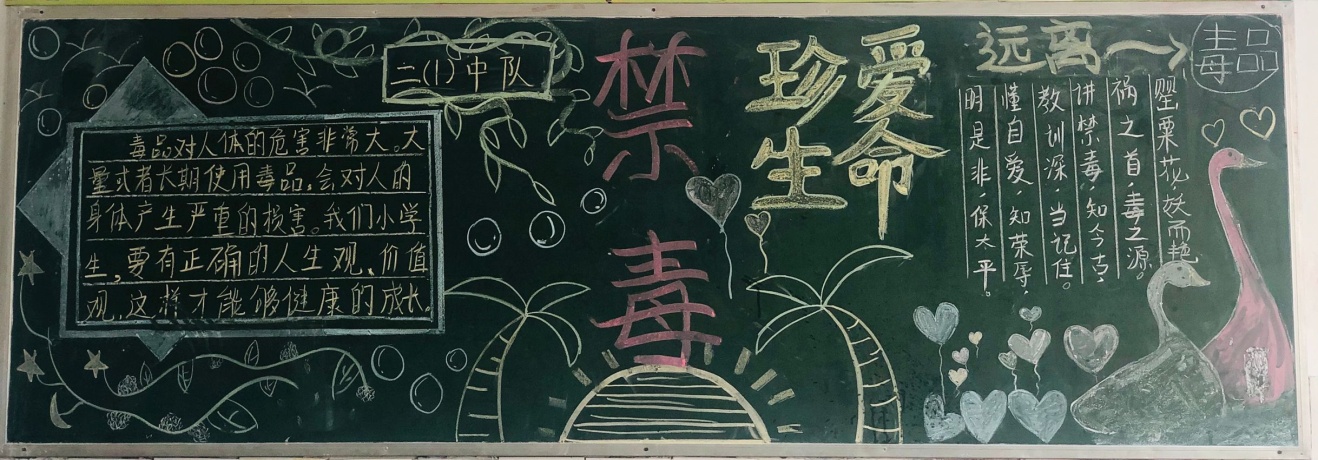 二(1)中队
毒品对人体的危害非常大。大
量或者长期使用毒品,会对人的
身体产生严重的损害。我们小学
生,要有正确的人生观、价值
观,这样才能够健康的成长。
禁毒
爱命
珍生
远离→毒品
罂粟花,妖而艳
祸之首,毒之源。
讲禁毒,知今古,
教训深,当记住。
懂自爱,知荣辱,
明是非,保太平。